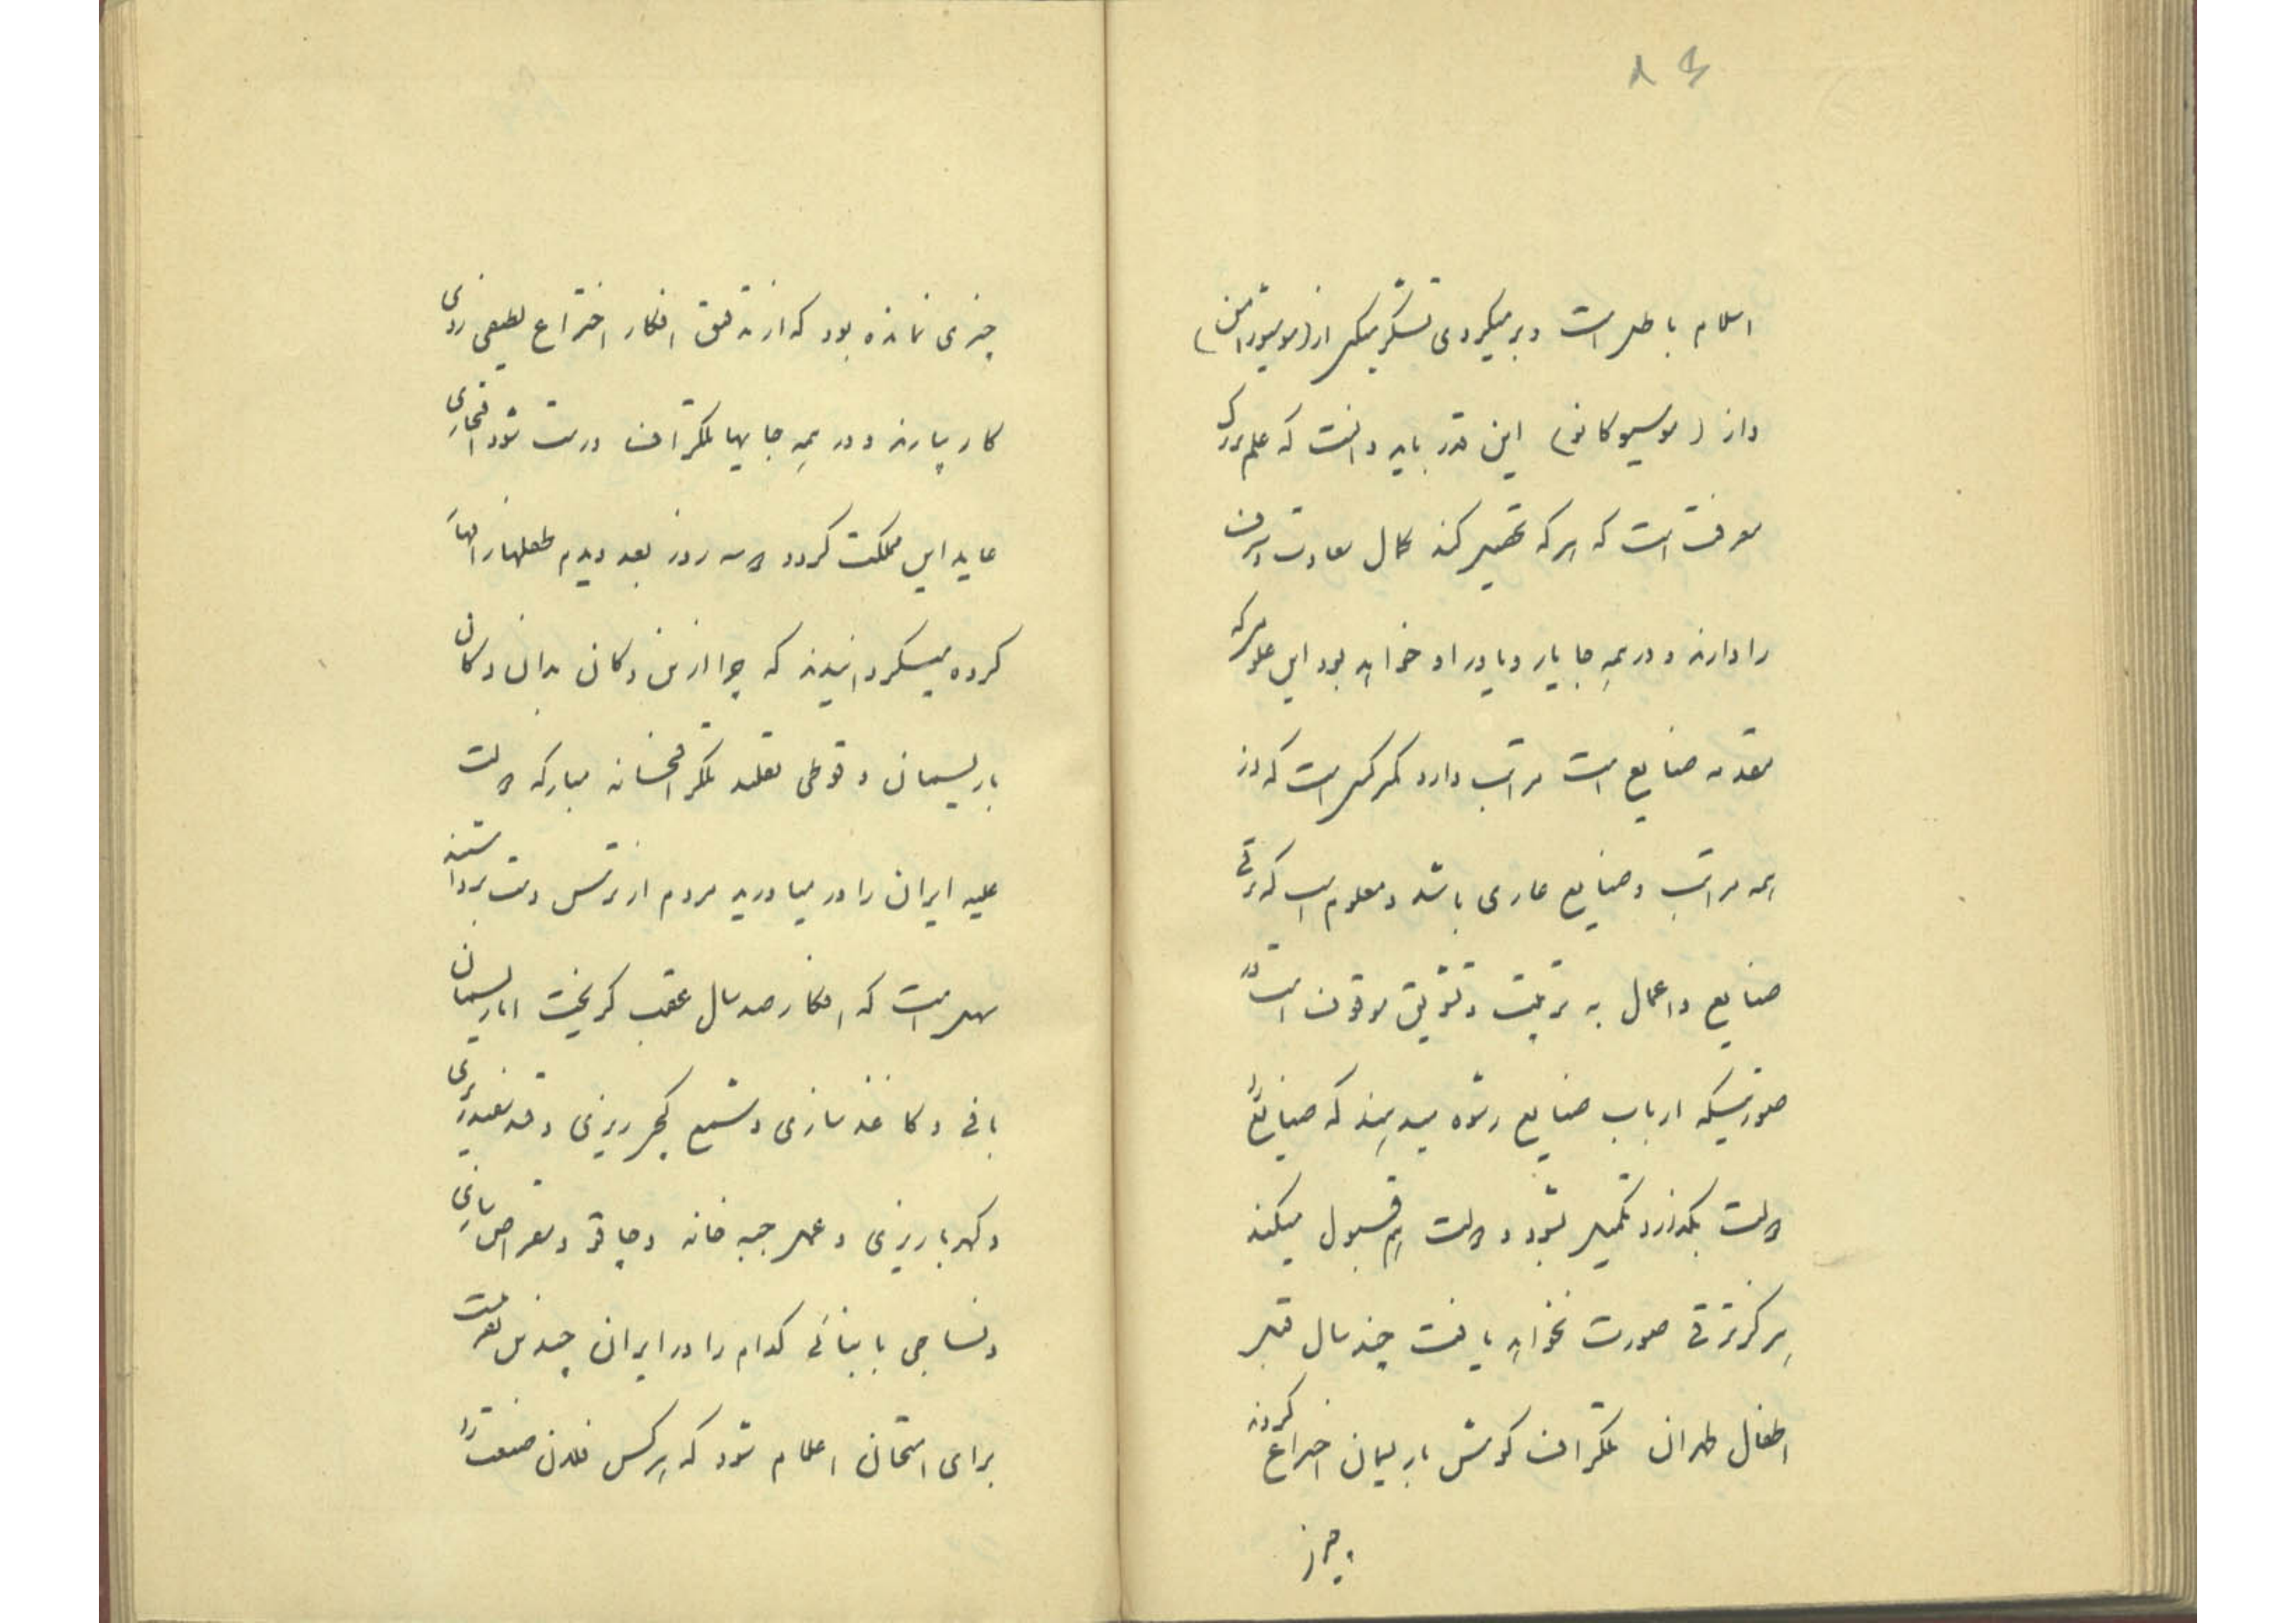 ۸۴
اسلام باطل است و بر میگردی تشکر میکنم از (موسیو
و از (موسیو کانو) این قدر باید دانست که علم بزرگ
معرفت است که هر که تحصیل کند کمال سعادت و شرف
را دارند و در همه جا یار و یاور او خواهد بود این علوم که
مقدمه صنایع است مراتب دارد کمتر کسی است که از
همه مراتب و صنایع عاری باشد و معلوم است که ترقی
صنایع و اعمال به تربیت و تشویق موقوف است در
صورتیکه ارباب صنایع رشوه میدهند که صنایع را
دولت بگذارد تکمیل شود و دولت هم قبول میکند
هرگز ترقی صورت نخواهد یافت چند سال قبل
اطفال طهران تلگراف گوش باریسمان اختراع کردند
چیزی
چیزی نمانده بود که از تدقیق افکار اختراع لطیفی روی
کار بیارند و در همه جاها تلگراف درست شود افتخاری
عاید این مملکت گردد دو سه روز بعد دیدم طفلها را
کرده میگردانیدند که چرا از این دکان بدان دکان
باریسمان و قوطی تقلید تلگرافخانه مبارکه دولت
علیه ایران را در میاورید مردم از ترس دست برداشتند
سهل است که افکار صد سال عقب گریخت اما ریسمان
بافی و کاغذ سازی و شمع گچی ریزی و قند
و کهربا ریزی و عمل جبه خانه و چاقو و مقراض سازی
و نساجی یا بنائی کدام را در ایران چندین
برای امتحان اعلام شود که هر کس فلان صنعت را